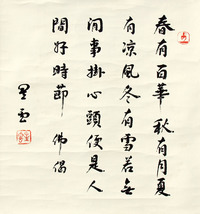 春有百華秋有月夏
有凉風冬有雪若無
閒事掛心頭便是人
間好時節 佛偈
星雲